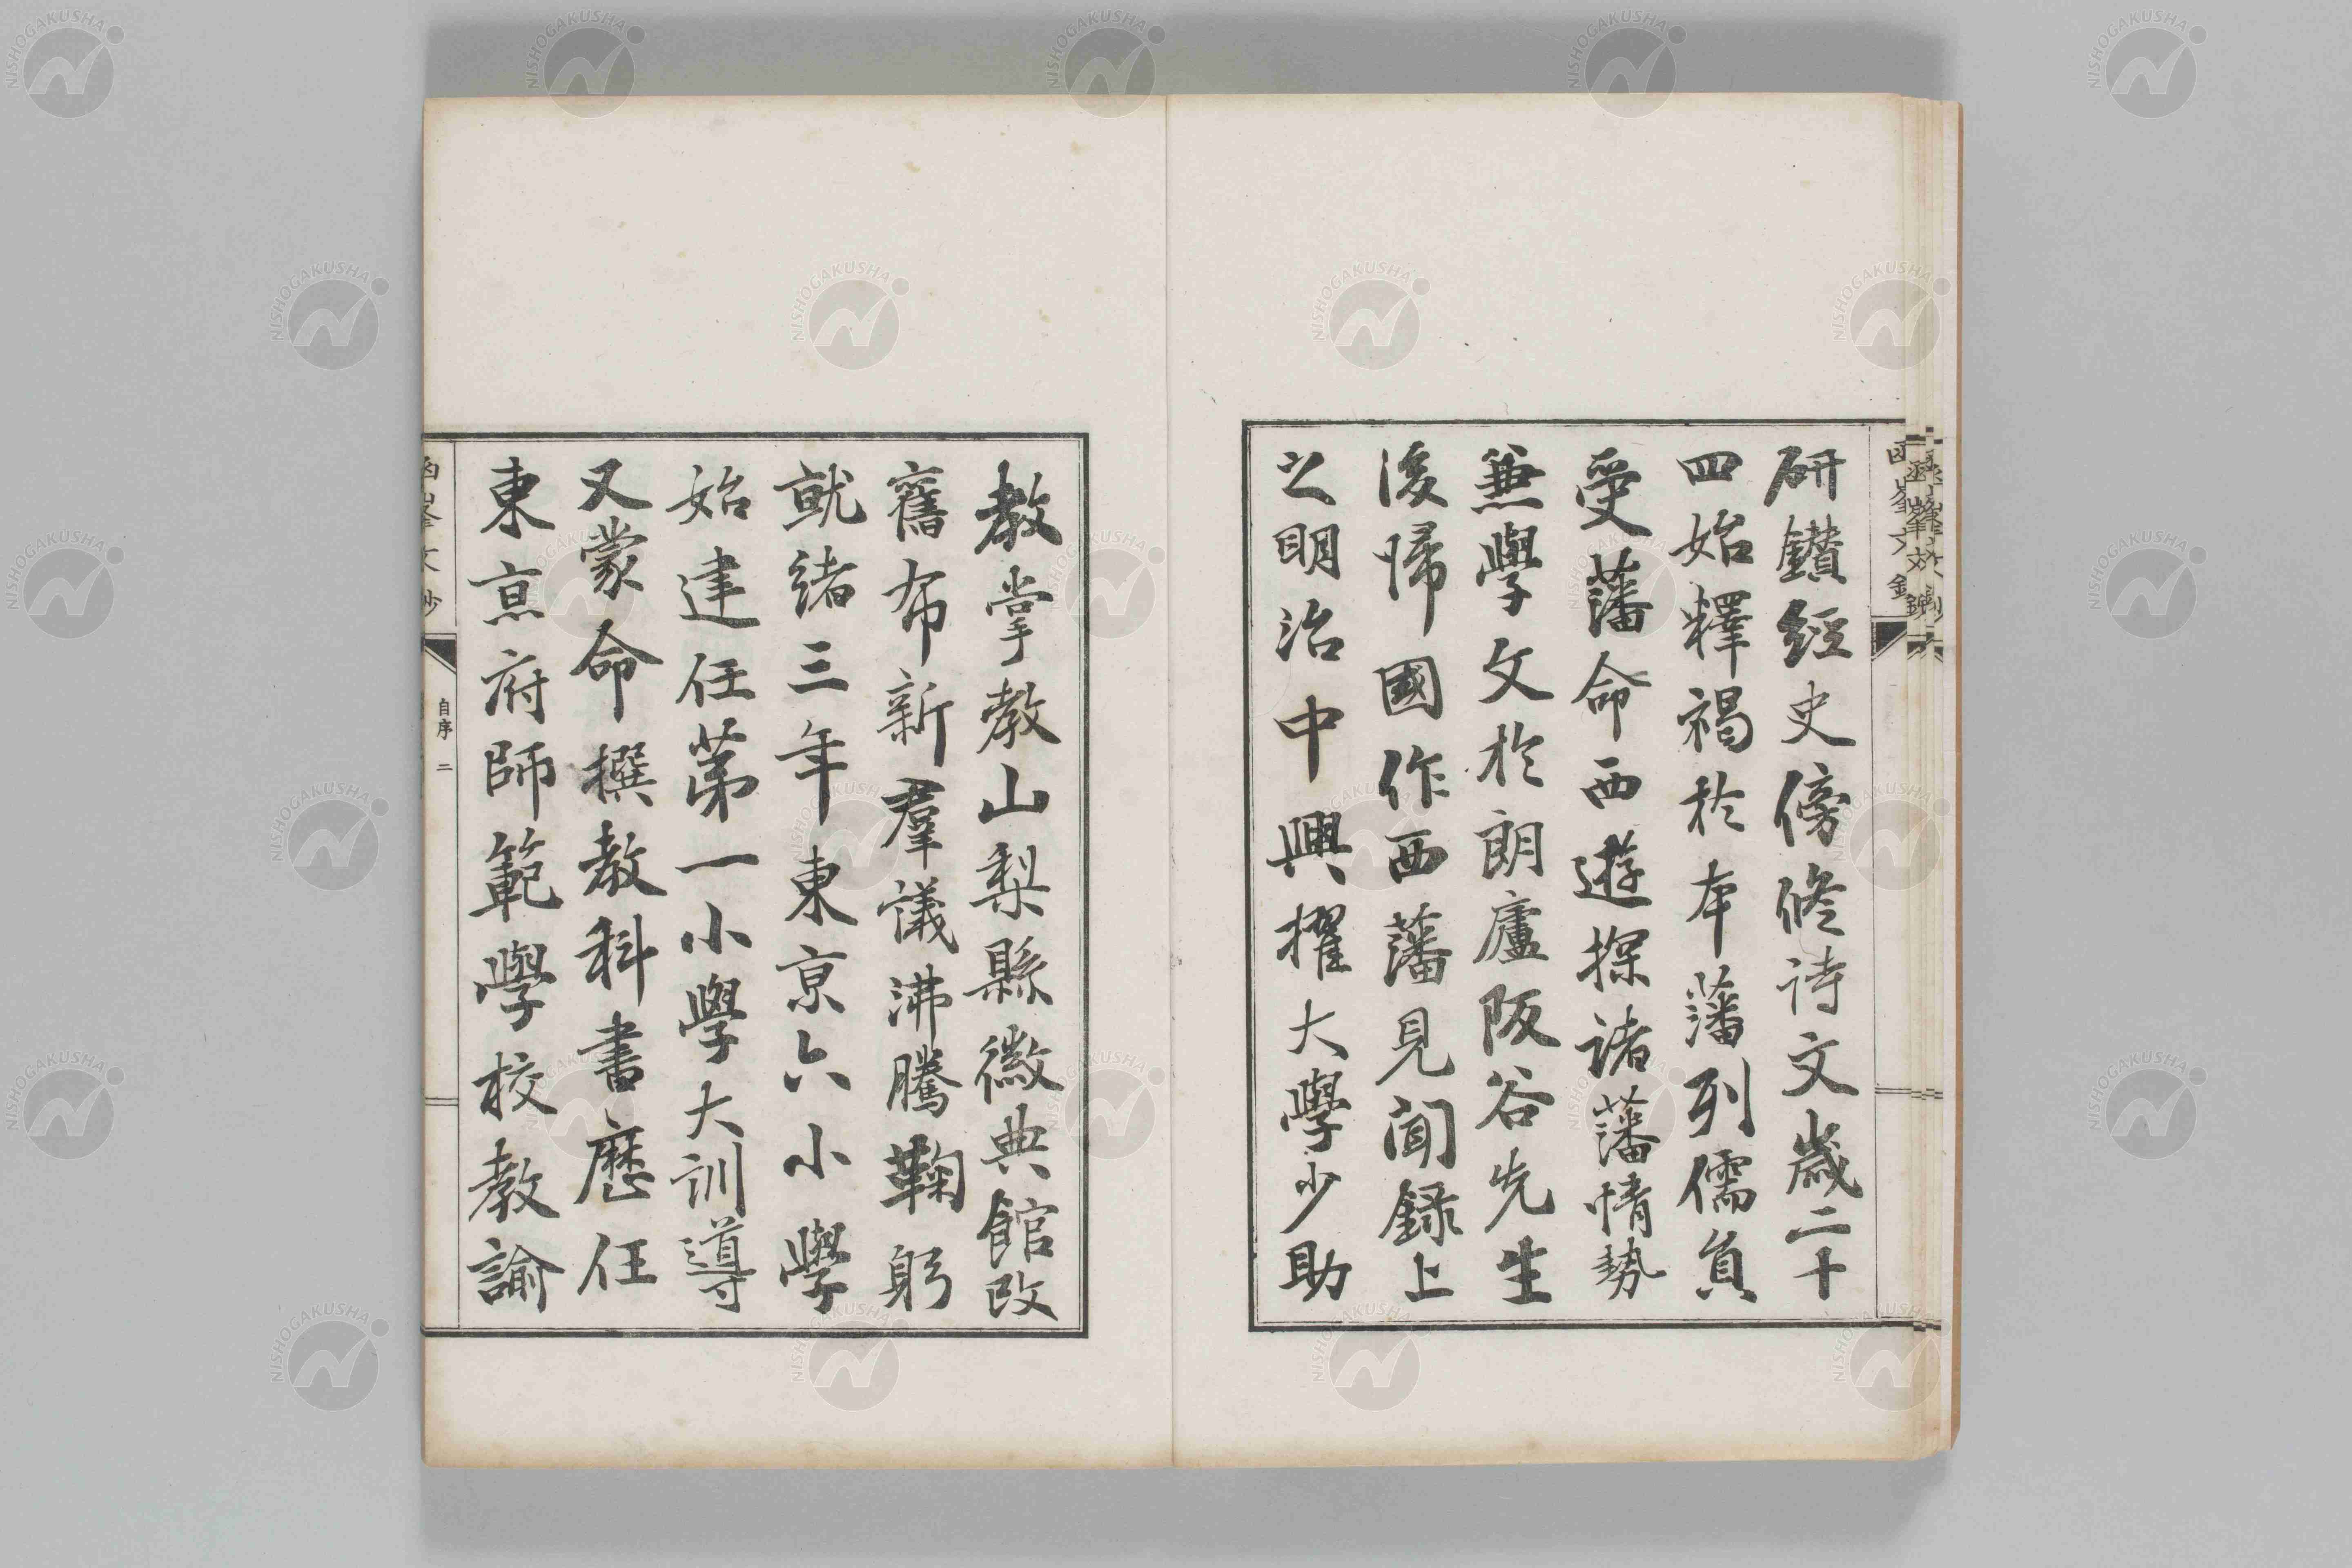 研鑽經史傍修詩文歲二十
四始釋褐於本藩列儒負
受藩命西遊探諸藩情勢
兼學文於朗廬阪谷先生
後歸國作西藩見聞録上
之明治中興擢大學少助
教掌教山梨縣徽典館改
舊布新羣議沸騰鞠躬
就緒三年東京六小學
始建任第一小學大訓導
又蒙命撰教科書歷任
東京府師範學校教諭
自序 二
NISHOGAKUSHA